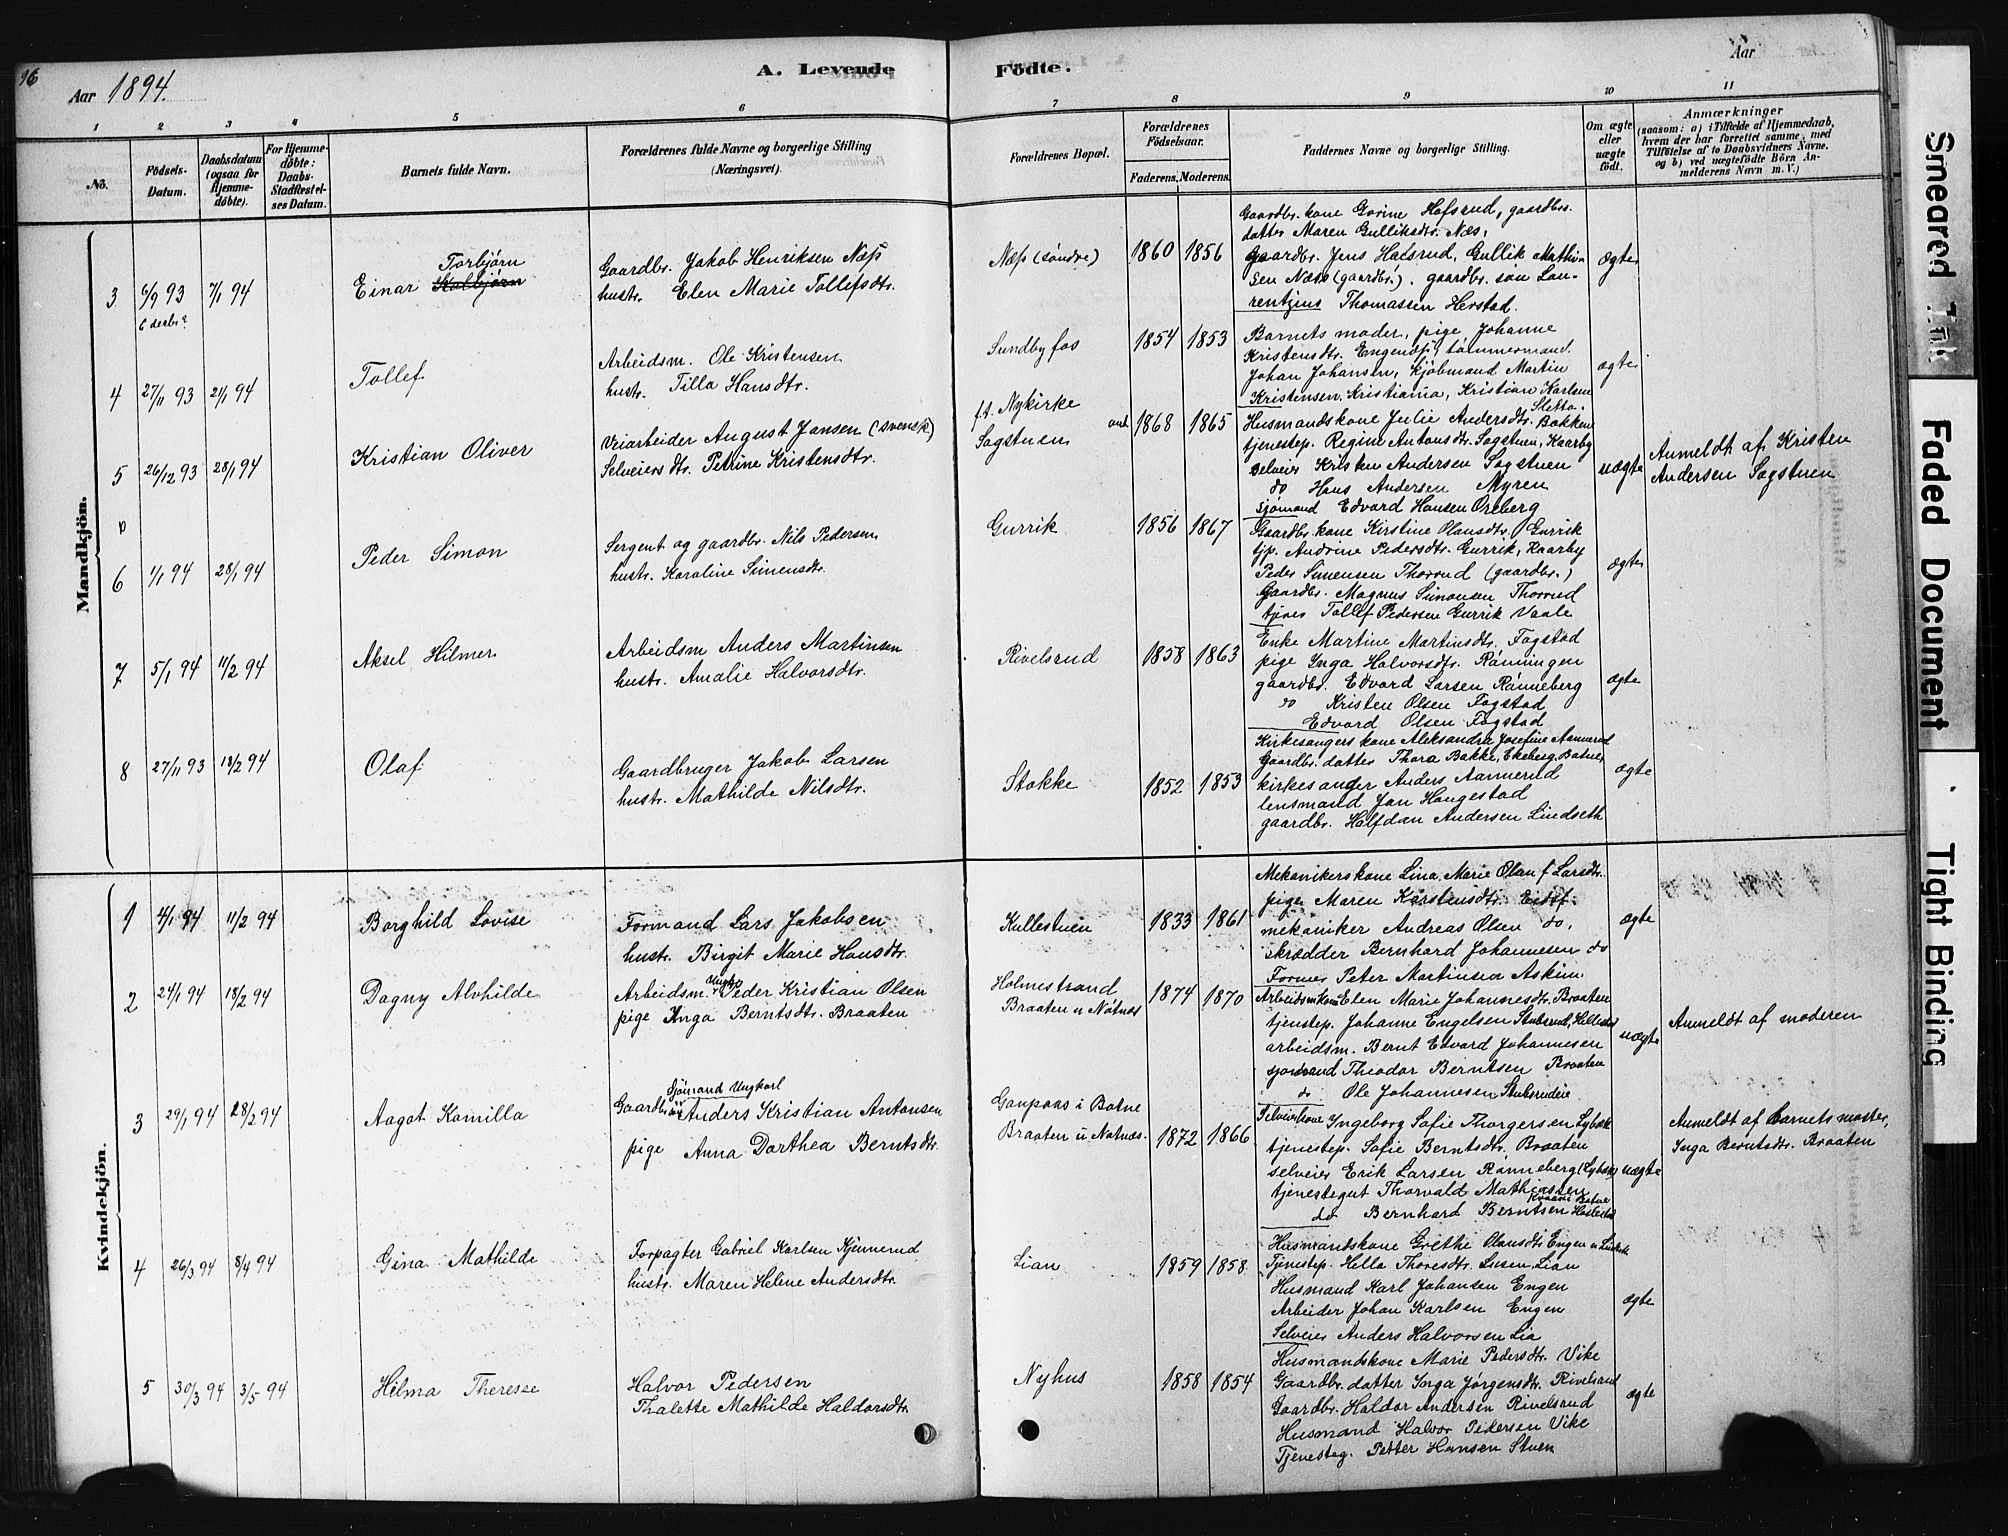 96
Aar 1894.
A. Levende Födte.
Aar
1 2 3 4 5 6 7 8 9 10 11
No.
Födsels-Datum.
Daabsdatum (ogsaa for Hjemmedöbte).
For Hjemmedöbte: Daabs-Stadfæstelses Datum.
Barnets fulde Navn.
Forældrenes fulde Navne og borgerlige Stilling (Næringsvei).
Forældrenes Bopæl.
Forældrenes Födselsaar.
Faderens. Moderens.
Faddernes Navne og borgerlige Stilling.
Om ægte eller uægte födt.
Anmærkninger
(saasom: a) i Tilfælde af Hjemmedaab, hvem der har forrettet samme, med Tilföielse af to Daabsvidners Navne, og b) ved uægtefödte Börn Anmelderens Navn m. V.)
Mandkjön.
3 6/9 93 7/1 94
Einar Torbjørn
Gaardbr. Jakob Henriksen Næss
hustr. Elen Marie Tollefsdtr.
Næss (søndre) 1860 1856
Gaardbr. kone Gorine Hafsrud, gaardbr.
datter Maren Gulliksdtr. Næs,
Gaardbr. Jens Halsrud, Gullik Mathi-
sen Næss (gaardbr.). gaardbr. søn Lau-
rentzius Thomassen Herstad.
ægte
4 27/11 93 21/1 94
Tollef
Arbeidsm. Ole Kristensen
hustr. Tilla Hansdtr.
Sundbyfos 1854 1853
Barnets moder, pige Johanne
Kristensdtr. Engenæs, tømmermand
Johan Johansen, kjøbmand Martin
Kristensen, Kristiania, Kristian Karlsen
Sletta.
ægte
5 26/12 93 28/1 94
Kristian Oliver
Veiarbeider August Jansen (svensk)
Selveiers dtr. Petrine Kristensdtr.
f.t. Nykirke
Sagstuen 1868 1865
Husmandskone Julie Andersdtr. Bakken
tjenestep. Regine Antonsdtr. Sagstuen, Kaarby
selveier Kristen Andersen Sagstuen
do Hans Andersen Myren
sjømand Edvard Hansen Oreberg
uægte
Anmeldt af Kristen
Andersen Sagstuen
6 1/1 94 28/1 94
Peder Simon
Sergent og gaardbr. Nils Pedersen
hustr. Karoline Simensdtr.
Gurrik 1856 1867
Gaardbr. kone Kirstine Olausdtr. Gurrik
tjp. Andrine Pedersdtr. Gurrik, Kaarby
Peder Simensen Thorrud (gaardbr.)
Gaardbr. Magnus Simonsen Thorrud
tjener Tollef Pedersen Gurrik Vaale
ægte
7 5/1 94 11/2 94
Aksel Hilmer
Arbeidsm Anders Martinsen
hustr. Amalie Halvorsdtr.
Rivelsrud 1858 1863
Enke Martine Martinsdtr. Fagstad
pige Inga Halvorsdtr. Rønningen
gaardbr. Edvard Larsen Rønneberg
do Kristen Olsen Fagstad
Edvard Olsen Fagstad
ægte
8 27/11 93 18/2 94
Olaf
Gaardbruger Jakob Larsen
hustr. Mathilde Nilsdtr.
Stokke 1852 1853
Kirkesangers kone Aleksandra Josefine Aannerud
Gaardbr. datter Thora Bakke, Ekeberg, Botne,
kirkesanger Anders Aannerud
lensmand Jan Haugestad
gaardbr. Halfdan Andersen Lindseth
ægte
Kvindekjön.
1 4/1 94 11/2 94
Borghild Lovise
Formand Lars Jakobsen
hustr. Birgit Marie Hansdtr.
Kullestuen 1833 1861
Mekanikers kone Lina Marie Olsen f. Larsdtr.
pige Maren Karstensdtr. Eidsf.
mekaniker Andreas Olsen do.
skrædder Bernhard Johannesen do
Former Peter Martinsen Askim
ægte
2 24/1 94 18/2 94
Dagny Alvhilde
Arbeidsm. Ungk. Peder Kristian Olsen
pige Inga Berntsdtr. Braaten
Holmestrand
Braaten u Nøtnæs 1874 1870
Arbeidsm kone Elen Marie Johannesdtr. Braaten
tjenestep. Johanne Engelsen Stubsrud, Hillestad
arbeidsm. Bernt Edvard Johannesen
sjømand Theodor Berntsen Braaten
do Ole Johannesen Stubsrudeie
uægte
Anmeldt af moderen
3 29/1 94 28/2 94
Aagot Kamilla
Sjømand Ungkarl
Anders Kristian Antonsen
pige Anna Dorthea Berntsdtr.
Gaupaas i Botne
Braaten u Nøtnæs. 1872 1866
Selveierkone Ingeborg Sofie Thorgersen Lybæk
tjenestep. Sofie Berntsdtr. Braaten
selveier Erik Larsen Rønneberg (Lybæk)
tjenestegut Thorvald Mathiassen
do Bernhard Berntsen
uægte
Anmeldt af Barnets moster,
Inga Berntsdtr. Braaten
4 26/3 94 8/4 94
Gina Mathilde
Forpagter Gabriel Karlsen Kjennerud
hustr. Maren Helene Andersdtr.
Lian 1859 1858
Husmandskone Grethe Olausdtr Engen
Tjenestep. Hella Thoresdtr. Susen Lian
Husmand Karl Johansen Engen
Arbeider Johan Karlsen Engen
Selveier Anders Halvorsen Lia
ægte
5 30/3 94 3/5 94
Hilma Theresse
Halvor Pedersen
Thalette Mathilde Haldorsdtr.
Nyhus 1858 1854
Husmandskone Marie Pedersdtr. Vike
Gaardbr. datter Inga Jørgensdtr. Rivelsrud
Gaardbr. Haldor Andersen Rivelsrud
Husmand Halvor Pedersen Vike
Tjenesteg. Petter Hansen Stuen
ægte
Smeared Ink
Faded Document
Tight Binding